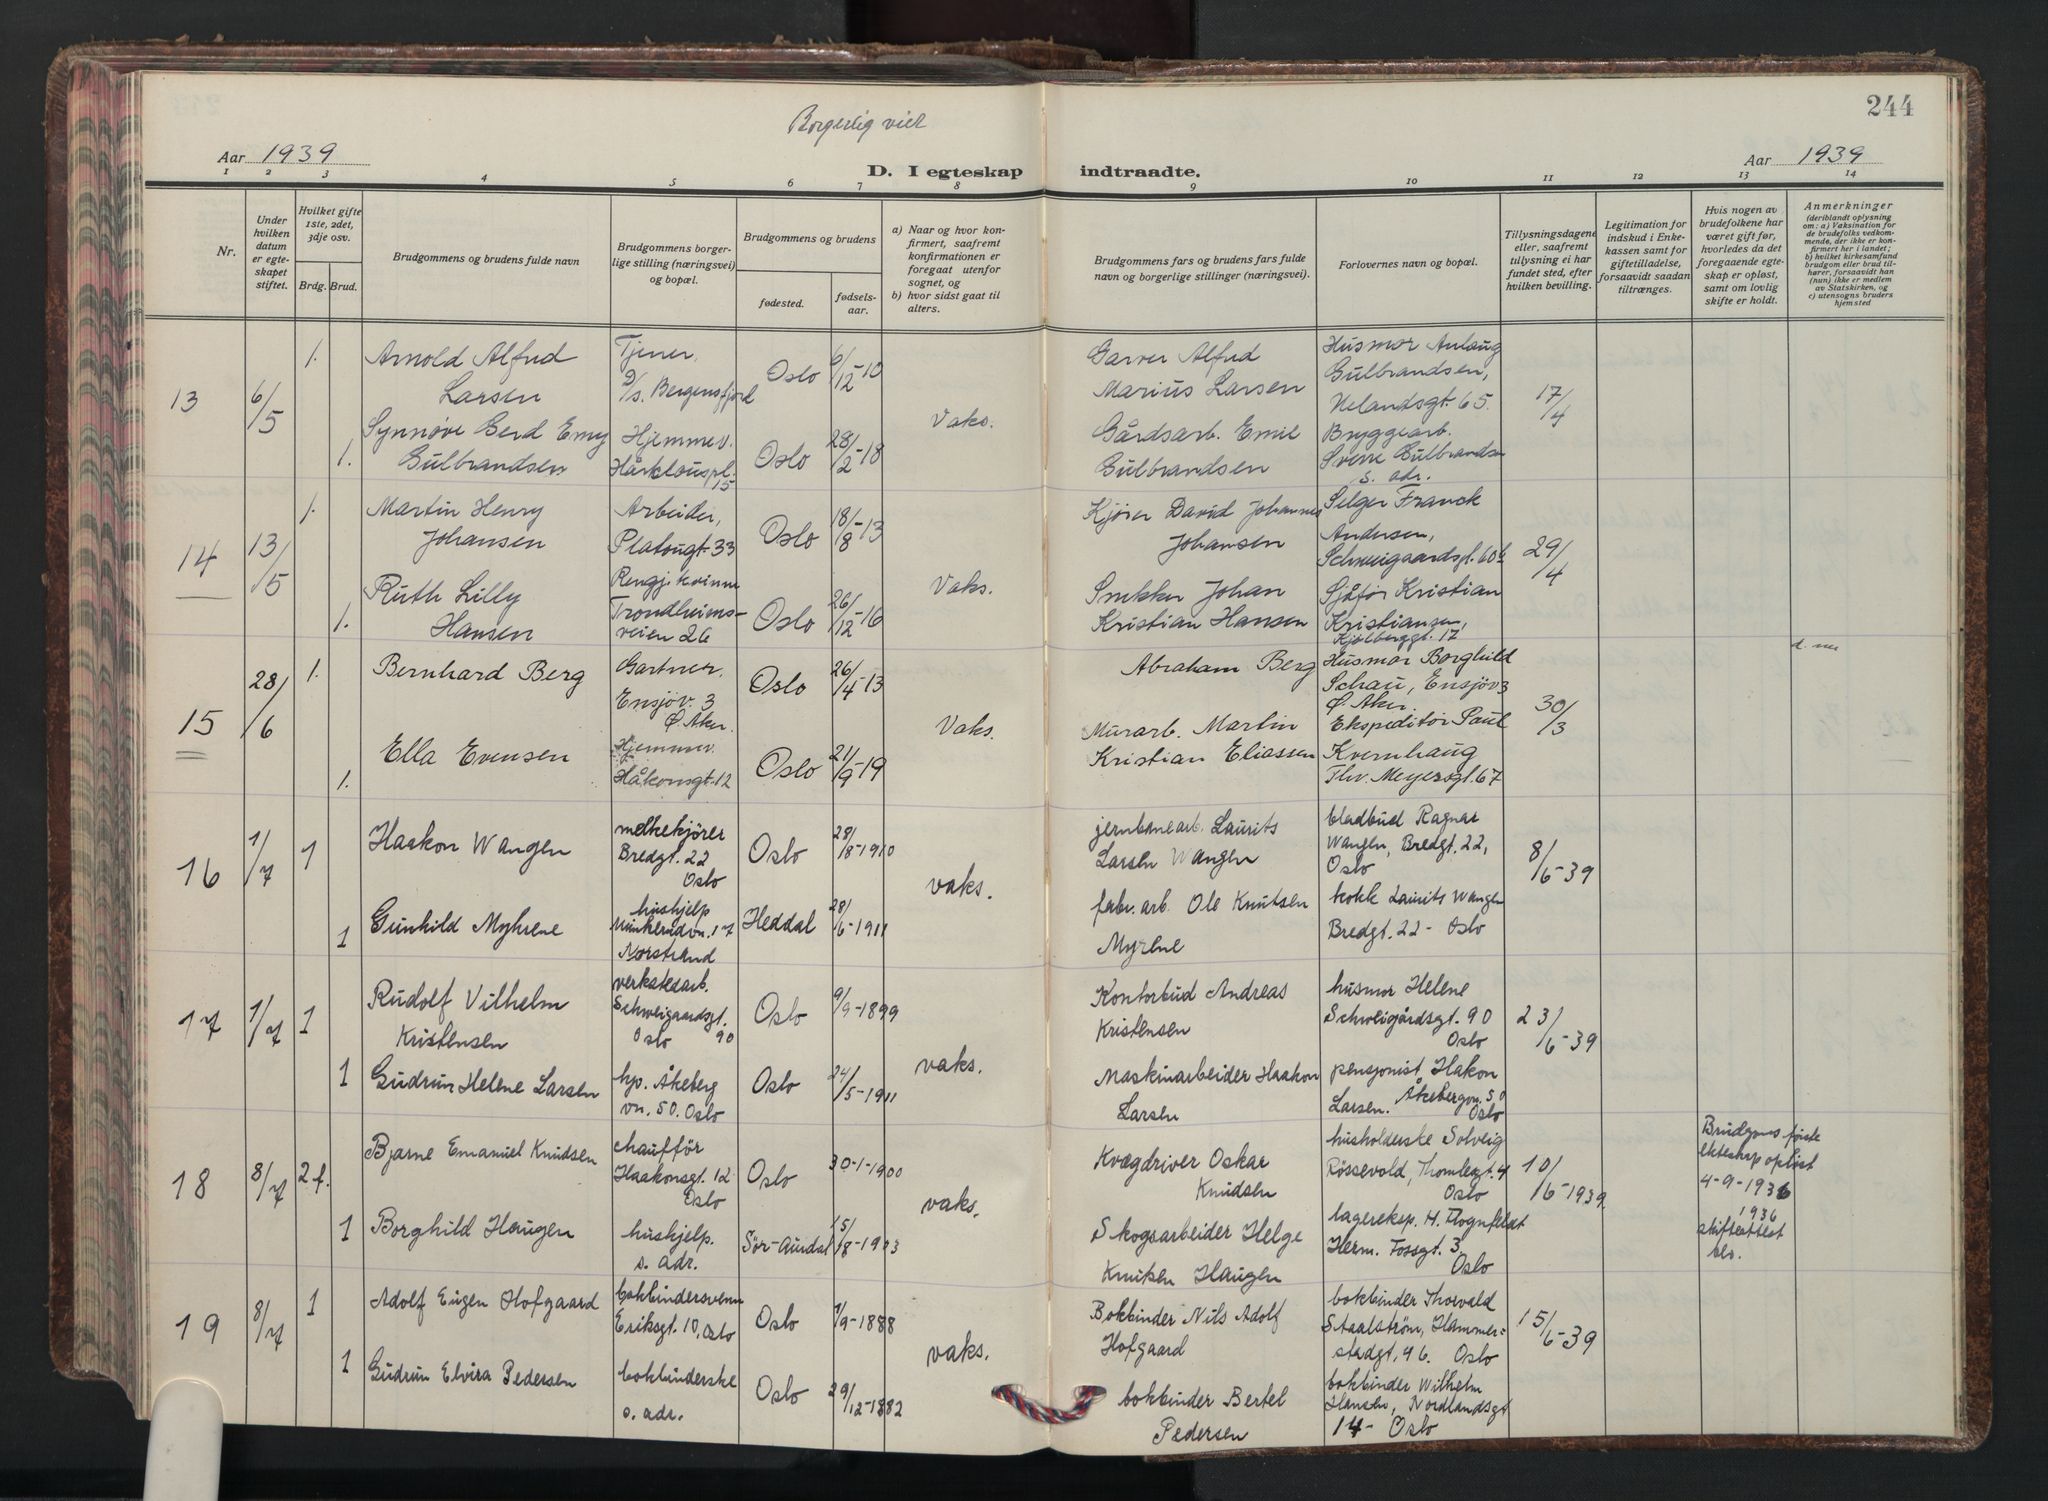 244
Borgerlig viet
Aar 1939
D. I egteskap indtraadte.
Aar 1939
1 2 3 4 5 6 7 8 9 10 11 12 13 14
Nr.
Under hvilken datum er egteskapet stiftet.
Hvilket gifte 1ste, 2det, 3dje osv.
Brdg. Brud.
Brudgommens og brudens fulde navn
Brudgommens borgerlige stilling (næringsvei) og bopæl.
Brudgommens og brudens
fødested.
fødselsaar.
a) Naar og hvor konfirmert, saafremt konfirmationen er foregaat utenfor sognet, og
b) hvor sidst gaat til alters.
Brudgommens fars og brudens fars fulde navn og borgerlige stillinger (næringsvei).
Forlovernes navn og bopæl.
Tillysningsdagene eller, saafremt tillysning ei har fundet sted, efter hvilken bevilling.
Legitimation for indskud i Enkekassen samt for giftetilladelse, forsaavidt saadan tiltrænges.
Hvis nogen av brudefolkene har været gift før, hvorledes da det foregaaende egteskap er opløst, samt om lovlig skifte er holdt.
Anmerkninger
(deriblandt oplysning om: a) Vaksination for de brudefolks vedkommende, der ikke er konfirmert her i landet; b) hvilket kirkesamfund brudgom eller brud tilhører, forsaavidt han (hun) ikke er medlem av Statskirken, og c) utensogns bruders hjemsted
13 6/5 1. Arnold Alfred Larsen
Tjener, D/s. Bergensfjord
Oslo 6/12-10
Garver Alfred Marius Larsen
Husmor Anlaug Gulbrandsen, Nelandsgt. 65.
17/4
1. Synnøve Gerd Emy Gulbrandsen
Hjemmev. Håreklouspl. 15
Oslo 28/2-18
Vaks.
Gårdsarb. Emil Gulbrandsen
Bryggearb. Sverre Gulbrandsen s. adr.
14 13/5 1. Martin Henry Johansen
Arbeider, Platougt. 33
Oslo 18/8-13
Kjører David Johannes Johansen
Selger Franck Andersen, Schweigaardsgt. 60b
29/4
1. Ruth Lilly Hansen
Rengj. kvinne Trondheimsveien 26
Oslo 26/12-16
Vaks.
Snekker Johan Kristian Hansen
Sjåfør Kristian Kristiansen, Kjølberggt. 17
15 28/6 1. Bernhard Berg
Gartner, Ensjøv. 3 Ø. Aker.
Oslo 26/4-13
Abraham Berg
Husmor Borghild Schau, Ensjøv 3 Ø. Aker.
30/3
1. Ella Evensen
Hjemmev. Håkonsgt. 12
Oslo 21/9-19
Vaks.
Murarb. Martin Kristian Eliassen
Ekspeditør Paul Kvernhaug Thv. Meyersgt. 67
16 1/7 1 Haakon Wangen
melkekjører Bredgt. 22 Oslo
Oslo 28/8-1910
jernbanearb. Laurits Larsen Wangen
bladbud Ragnar Wangen, Bredgt. 22, Oslo
8/6-39
1 Gunhild Myhrene
hushjelp Munkerudvn. 17 Norstrand
Heddal 28/6-1911
vaks.
fabr. arb. Ole Knutsen Myrene
kokk Laurits Wangen Bredgt. 22 - Oslo
17 1/7 1 Rudolf Vilhelm Kristensen
verkstedarb. Schweigaardsgt. 90 Oslo
Oslo 9/9-1899
Kontorbud Andreas Kristensen
husmor Helene Schweigårdsgt. 90 Oslo
23/6-39
1 Gudrun Helene Larsen
hp. Åkeberg vn. 50. Oslo
Oslo 24/5-1911
vaks.
Maskinarbeider Haakon Larsen
pensjonist Hakon Larsen. Åkebergvn. 50 Oslo
18 8/7 2 f. Bjarne Emanuel Knudsen
chauffør Haakonsgt. 12 Oslo
Oslo 30-1-1900
Kvægdriver Oskar Knudsen
husholderske Solveig Røssevold, Thomlegt. 4 Oslo
10/6-1939
Brudgoms første ekteskap opløst 4-9-1936
1936
skifteattest lev.
1 Borghild Haugen
hushjelp. s. adr.
Sør-Aurdal 15/8-1913
vaks.
Skogsarbeider Helge Knutsen Haugen
lagereksp. H. Rognfeldt Herm. Fossgt. 3, Oslo
19 8/7 1 Adolf Eugen Hofgaard
bokbindersvenn Eriksgt. 10, Oslo
Oslo 1/9-1888
Bokbinder Nils Adolf Hofgaard
bokbinder Thorvald Staalstrøm, Hammerstadgt, 46. Oslo
15/6-39
1 Gudrun Elvira Pedersen
bokbinderske s. adr.
Oslo 29/12-1882
vaks.
bokbinder Bertel Pedersen
bokbinder Wilhelm Hansen, Nordlandsgt 14 - Oslo